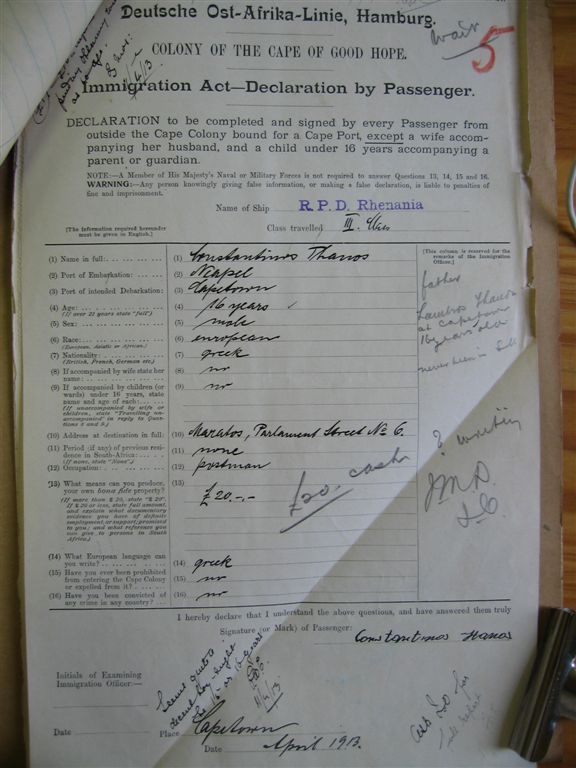 Deutsche Ost-Afrika-Linie, Hamburg.
wait
5
COLONY OF THE CAPE OF GOOD HOPE.
11/4/13
Immigration Act—Declaration by Passenger.
DECLARATION to be completed and signed by every Passenger from
outside the Cape Colony bound for a Cape Port, except a wife accom-
panying her husband, and a child under 16 years accompanying a
parent or guardian.
NOTE:—A Member of His Majesty's Naval or Military Forces is not required to answer Questions 13, 14, 15 and 16.
WARNING:—Any person knowingly giving false information, or making a false declaration, is liable to penalties of
fine and imprisonment.
Name of Ship R. P. D. Rhenania
Class travelled III. Class
[The information required hereunder
must be given in English.]
[This column is reserved for the
remarks of the Immigration
Officer.]
(1) Name in full: (1) Constantinos Thanos
(2) Port of Embarkation: (2) Neapel
(3) Port of intended Debarkation: (3) Capetown
(4) Age: (4) 16 years
(If over 21 years state "full")
(5) Sex: (5) male
(6) Race: (6) european
(European, Asiatic or African.)
(7) Nationality: (7) greek
(British, French, German etc.)
(8) If accompanied by wife state her
name: (8) no
(9) If accompanied by children (or
wards) under 16 years, state
name and age of each: (9) no
(If unaccompanied by wife or
children, state "Travelling un-
accompanied" in reply to Ques-
tions 8 and 9.)
father
Lambros Thanos
at Capetown
16 years old
never been in
(10) Address at destination in full: (10) Maratos, Parlament Street No 6.
(11) Period (if any) of previous res-
idence in South-Africa: (11) none
(If none, state "None".)
(12) Occupation: (12) postman
(13) What means can you produce,
your own bona fide property? (13) £20.-.-
(If more than £ 20, state "£ 20".
If £ 20 or less, state full amount,
and explain what documentary
evidence you have of definite
employment, or support, promised
to you; and what reference you
can give to persons in South
Africa.)
£20. cash
writing
(14) What European language can
you write? (14) greek
(15) Have you ever been prohibited
from entering the Cape Colony
or expelled from it? (15) no
(16) Have you been convicted of
any crime in any country? (16) no
I hereby declare that I understand the above questions, and have answered them truly
Signature (or Mark) of Passenger: Constantinos Thanos
Initials of Examining
Immigration Officer:—
11/4/13
Date
Place Capetown
Date April 1913.